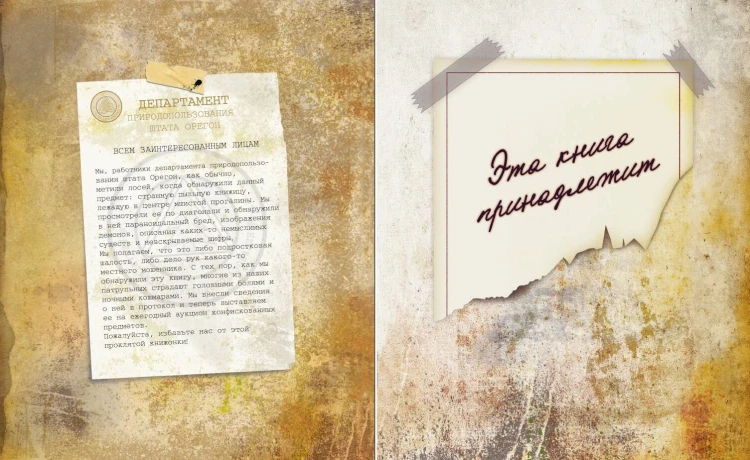 ДЕПАРТАМЕНТ
ПРИРОДОПОЛЬЗОВАНИЯ
ШТАТА ОРЕГОН
ВСЕМ ЗАИНТЕРЕСОВАННЫМ ЛИЦАМ
Мы, работники департамента природопользо-
вания штата Орегон, как обычно,
метили лосей, когда обнаружили данный
предмет: странную пыльную книжицу,
лежащую в центре мшистой прогалины. Мы
просмотрели ее по диагонали и обнаружили
в ней параноидальный бред, изображения
демонов, описания каких-то немыслимых
существ и нераскрываемые шифры.
Мы полагаем, что это либо подростковая
шалость, либо дело рук какого-то
местного мошенника. С тех пор, как мы
обнаружили эту книгу, многие из наших
патрульных страдают головными болями и
ночными кошмарами. Мы внесли сведения
о ней в протокол и теперь выставляем
ее на ежегодный аукцион конфискованных
предметов.
Пожалуйста, избавьте нас от этой
проклятой книжонки!
Эта книга
принадлежит